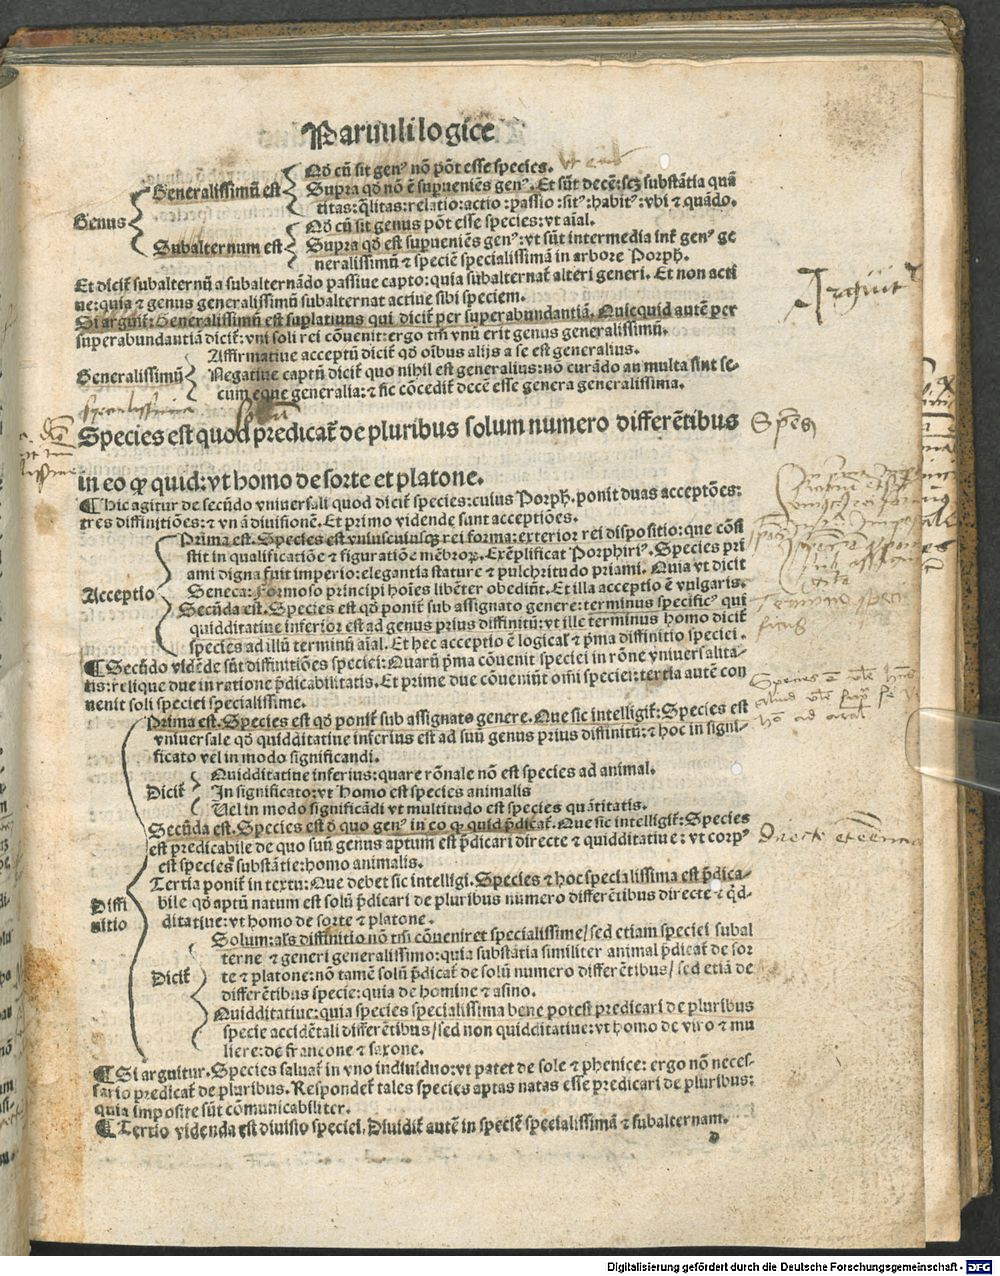 Paruuli logice
Genus
Generalissimū est
Nō cū sit genꝰ nō pōt esse species.
Supra qō nō ē supueniēs genꝰ. Et sūt decē: scꝫ substātia quā
titas: q̄litas: relatio: actio: passio: sitꝰ: habitꝰ: vbi ⁊ quādo.
Subalternum est
Nō cū sit genus pōt esse species: vt aīal.
Supra qō est supueniēs genꝰ: vt sūt intermedia int̄ genꝰ ge
neralissimū ⁊ speciē specialissimā in arbore Porph.
Et dicit̄ subalternū a subalternādo passiue capto: quia subalternat̄ alteri generi. Et non acti
ue: quia ⁊ genus generalissimū subalternat actiue sibi speciem.
Si arguit̄: Generalissimū est suplatiuus qui dicit̄ per superabundantiā. Quicquid autē per
superabundantiā dicit̄: vni soli rei cōuenit: ergo tm̄ vnū erit genus generalissimū.
Generalissimū
Affirmatiue acceptū dicit̄ qō oībus alijs a se est generalius.
Negatiue captū dicit̄ quo nihil est generalius: nō curādo an multa sint se-
cum eque generalia: ⁊ sic cōcedit̄ decē esse genera generalissima.
Species est quod predicat̄ de pluribus solum numero differētibus
in eo qꝙ quid: vt homo de sorte et platone.
¶ Hic agitur de secūdo vniuersali quod dicit̄ species: cuius Porph. ponit duas acceptōes:
tres diffinitiōes: ⁊ vnā diuisionē. Et primo vidende sunt acceptiōes.
Acceptio
Prima est. Species est vniuscuiusqꝫ rei forma: exterior rei dispositio: que cōsi
stit in qualificatiōe ⁊ figuratiōe mēbroꝝ. Exēplificat Porphiriꝰ. Species pri
ami digna fuit imperio: elegantia stature ⁊ pulchritudo priami. Quia vt dicit
Seneca: Formoso principi hoīes libēter obediūt. Et illa acceptio ē vulgaris.
Secūda est. Species est qō ponit̄ sub assignato genere: terminus specificꝰ qui
quidditatiue inferior est ad genus prius diffinitū: vt ille terminus homo dicit̄
species ad illū terminū aīal. Et hec acceptio ē logical̄ ⁊ p̄ma diffinitio speciei.
¶ Secūdo vidēde sūt diffinitiōes speciei: Quarū p̄ma cōuenit speciei in rōne vniuersalita-
tis: relique due in ratione p̄dicabilitatis. Et prime due cōueniūt omī speciei: tertia autē con
uenit soli speciei specialissime.
Diffi
nitio
Prima est. Species est qō ponit̄ sub assignato genere. Que sic intelligit̄: Species est
vniuersale qō quidditatiue inferius est ad suū genus prius diffinitū: ⁊ hoc in signi-
ficato vel in modo significandi.
Dicit̄
Quidditatiue inferius: quare rōnale nō est species ad animal.
In significato: vt homo est species animalis
Uel in modo significādi vt multitudo est species quātitatis.
Secūda est. Species est d̄ quo genꝰ in eo qꝙ quid p̄dicat̄. Que sic intelligit̄: Species
est predicabile de quo suū genus aptum est p̄dicari directe ⁊ quidditatiue: vt corpꝰ
est species substātie: homo animalis.
Tertia ponit̄ in textu: Que debet sic intelligi. Species ⁊ hoc specialissima est p̄dica-
bile qō aptū natum est solū p̄dicari de pluribus numero differētibus directe ⁊ q̄d-
ditatiue: vt homo de sorte ⁊ platone.
Dicit̄
Solum: als̄ diffinitio nō tm̄ cōueniret specialissime/ sed etiam speciei subal
terne ⁊ generi generalissimo: quia substātia similiter animal p̄dicat̄ de sor
te ⁊ platone: nō tamē solū p̄dicat̄ de solū numero differētibus/ sed etiā de
differētibus specie: quia de homine ⁊ asino.
Quidditatiue: quia species specialissima bene potest predicari de pluribus
specie accidētali differētibus/ sed non quidditatiue: vt homo de viro ⁊ mu
liere: de francone ⁊ saxone.
¶ Si arguitur. Species saluat̄ in vno indiuiduo: vt patet de sole ⁊ phenice: ergo nō neces-
sario predicat̄ de pluribus. Respondet̄ tales species aptas natas esse predicari de pluribus:
quia imposite sūt cōmunicabiliter.
¶ Tertio videnda est diuisio speciei. Diuidit̄ autē in speciē specialissimā ⁊ subalternam.
Arguit̄
specialissima
solū
Spēs
Terminus speci
ficus
Digitalisierung gefördert durch die Deutsche Forschungsgemeinschaft - DFG